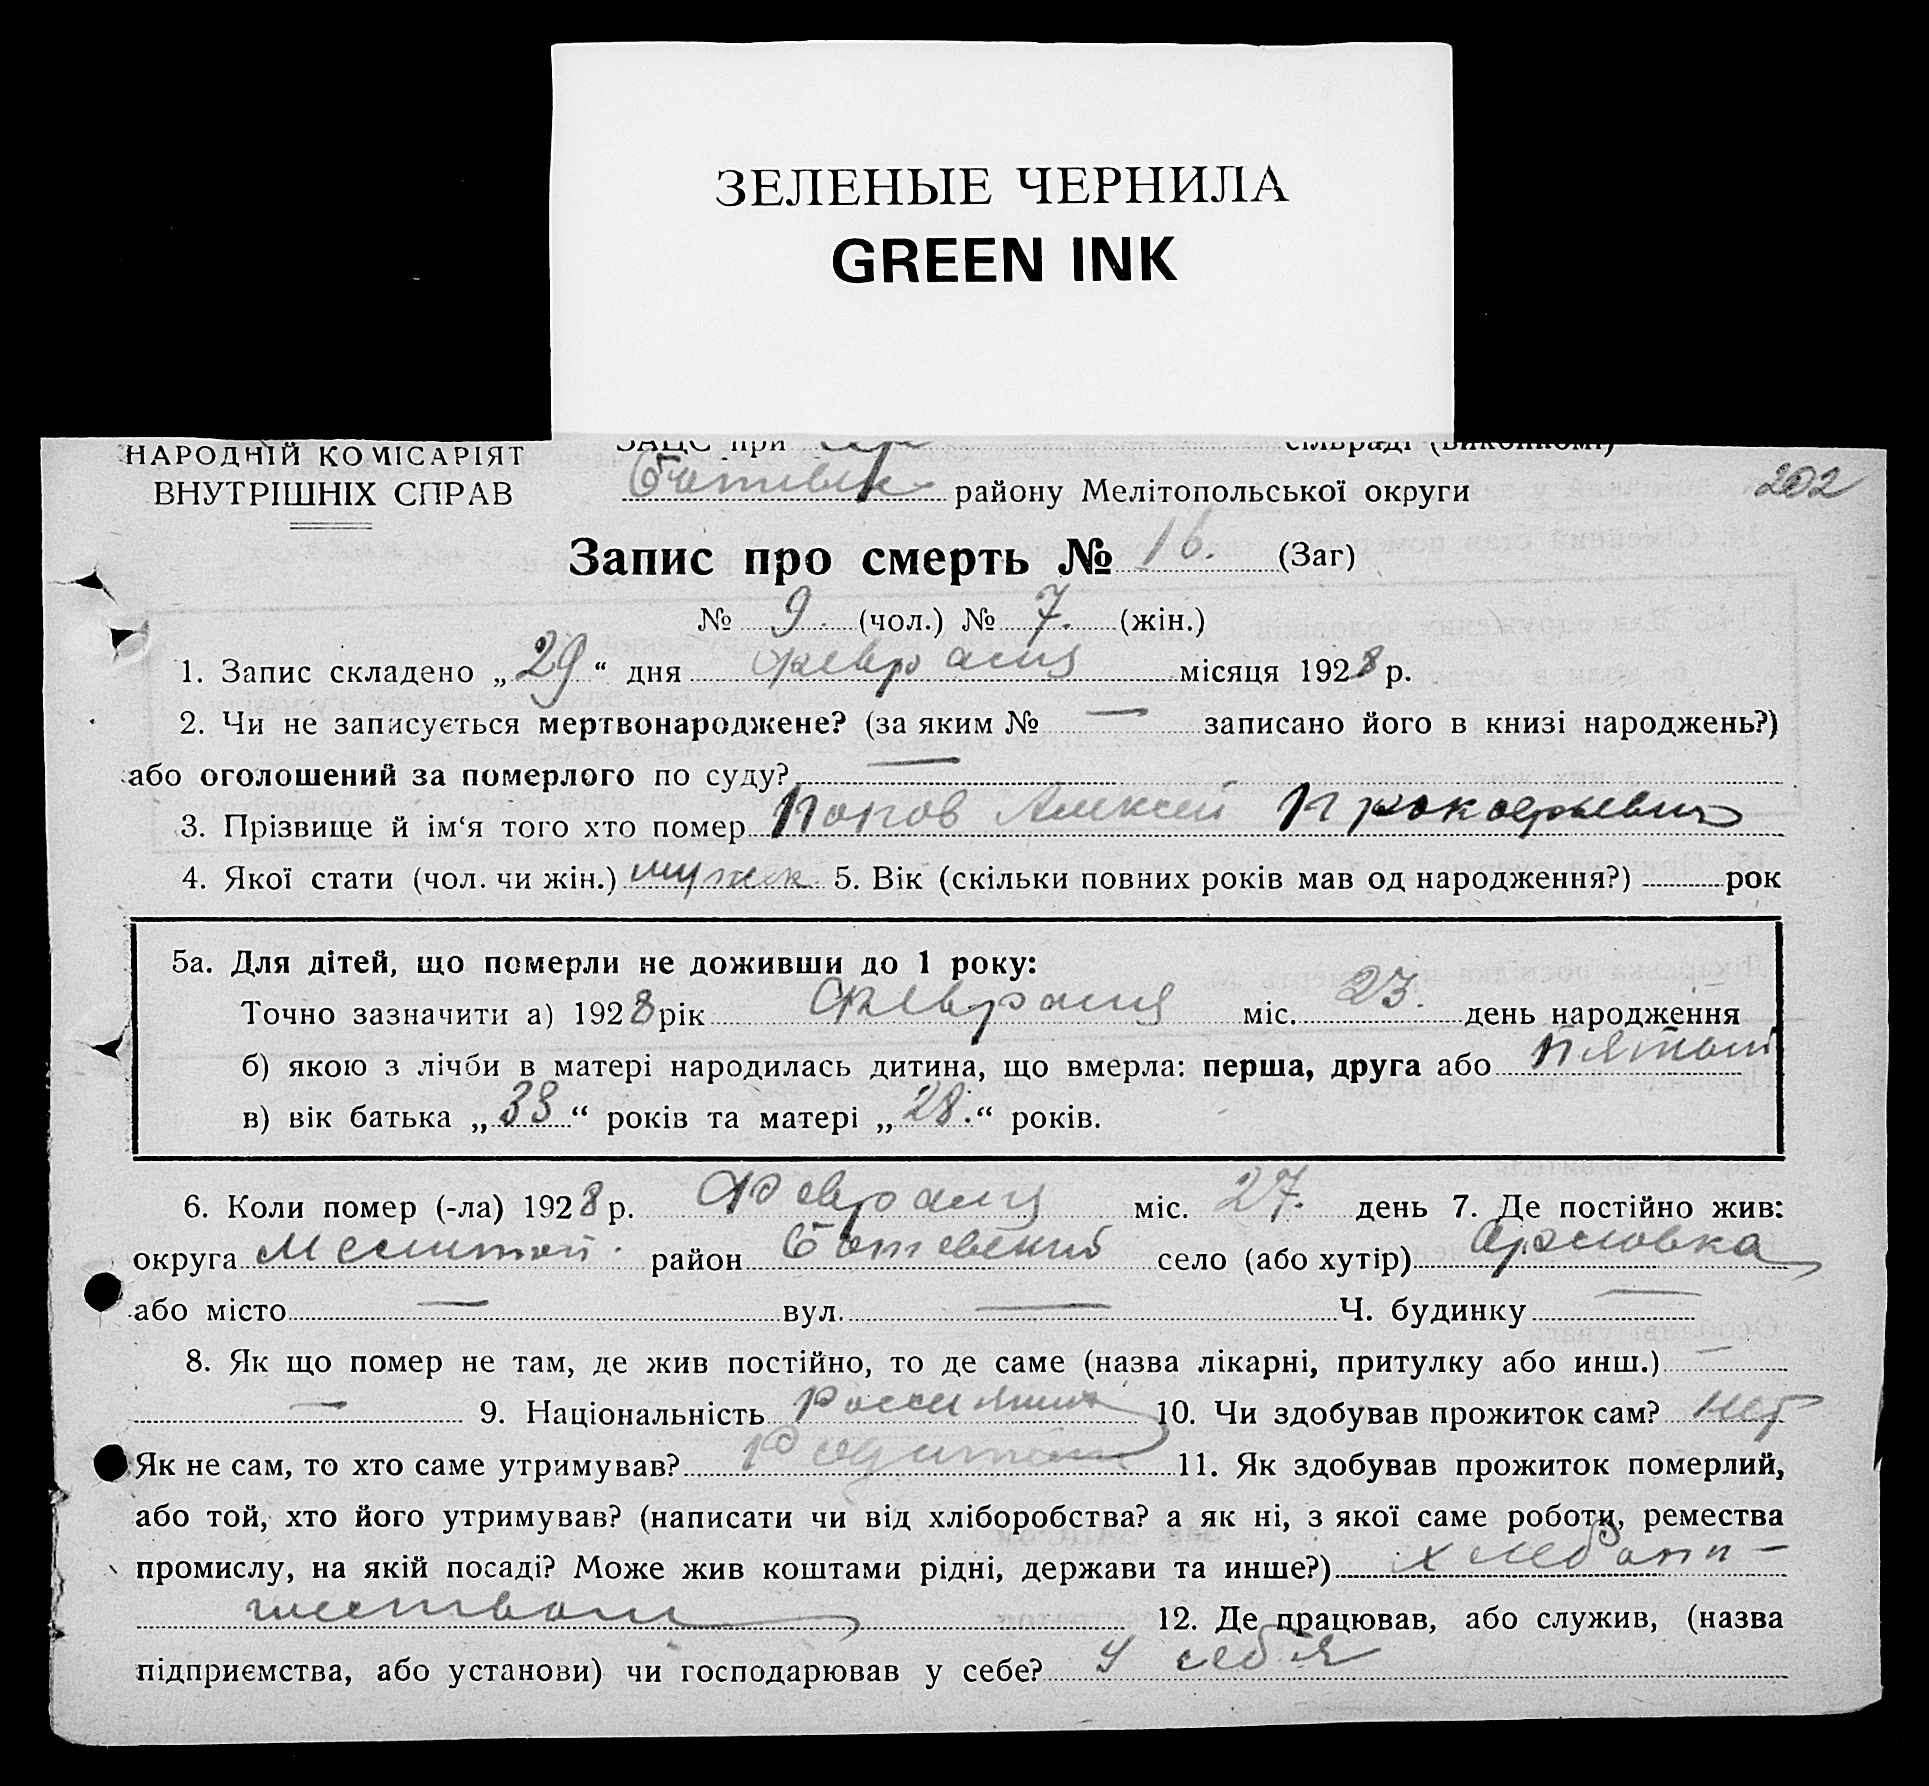 ЗЕЛЕНЫЕ ЧЕРНИЛА
GREEN INK
НАРОДНІЙ КОМІСАРІЯТ
ВНУТРІШНІХ СПРАВ
ЗАЦС при сільраді (виконкомі)
районy Мелітопольської округи
202
Запис про смерть № 16. (Заг)
№ 9. (чол.) № 7. (жін.)
1. Запис складено „29“ дня февраля місяця 1928 р.
2. Чи не записується мертвонароджене? (за яким № — записано його в книзі народжень?)
або оголошений за померлого по суду? —
3. Прізвище й ім‘я того хто помер Попов Алексей Прокофьевич
4. Якої стати (чол. чи жін.) мужск. 5. Вік (скільки повних років мав од народження?) рок
5а. Для дітей, що померли не доживши до 1 року:
Точно зазначити а) 1928 рік февраля міс. 23. день народження
б) якою з лічби в матері народилась дитина, що вмерла: перша, друга або
в) вік батька „33“ років та матері „28.“ років.
6. Коли помер (-ла) 1928 р. Февраля міс. 27. день 7. Де постійно жив:
округа Мелитоп. район Ботевский село (або хутір)
або місто — вул. — Ч. будинку —
8. Як що помер не там, де жив постійно, то де саме (назва лікарні, притулку або инш.) —
— 9. Національність 10. Чи здобував прожиток сам? нет
Як не сам, то хто саме утримував? 11. Як здобував прожиток померлий,
або той, хто його утримував? (написати чи від хліборобства? а як ні, з якої саме роботи, ремества
промислу, на якій посаді? Може жив коштами рідні, держави та инше?) хлебопа-
шеством 12. Де працював, або служив, (назва
підприємства, або установи) чи господарював у себе? У себя